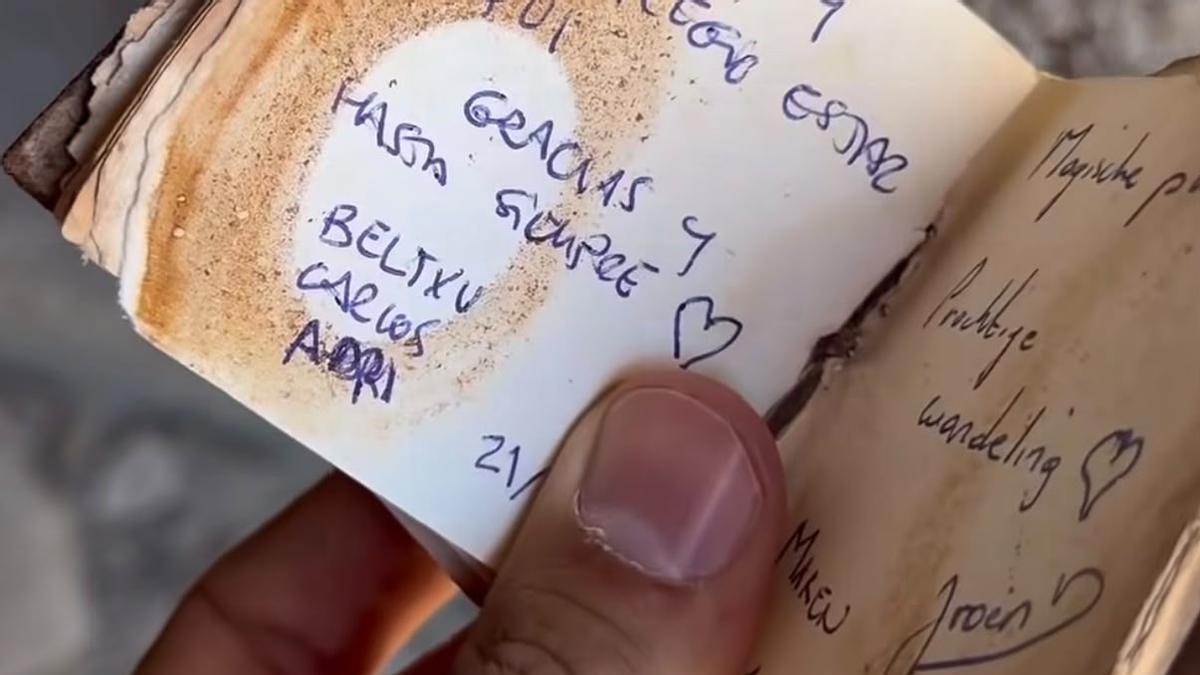 Y
ESTAR
GRACIAS Y
HASTA SIEMPRE
BELTXU
CARLOS
ADRI
21/
Magische
Prachtige
wandeling
MAREN
Jroen